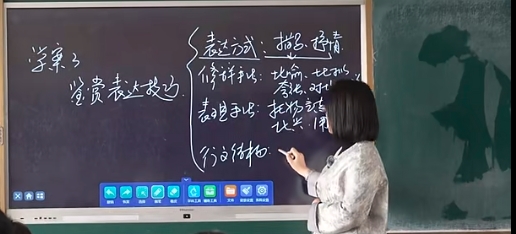 学案3
鉴赏表达技巧
表达方式：描写、抒情
修辞手法：比喻、比拟、
夸张、对比
表现手法：托物言志
比兴、
行文结构：